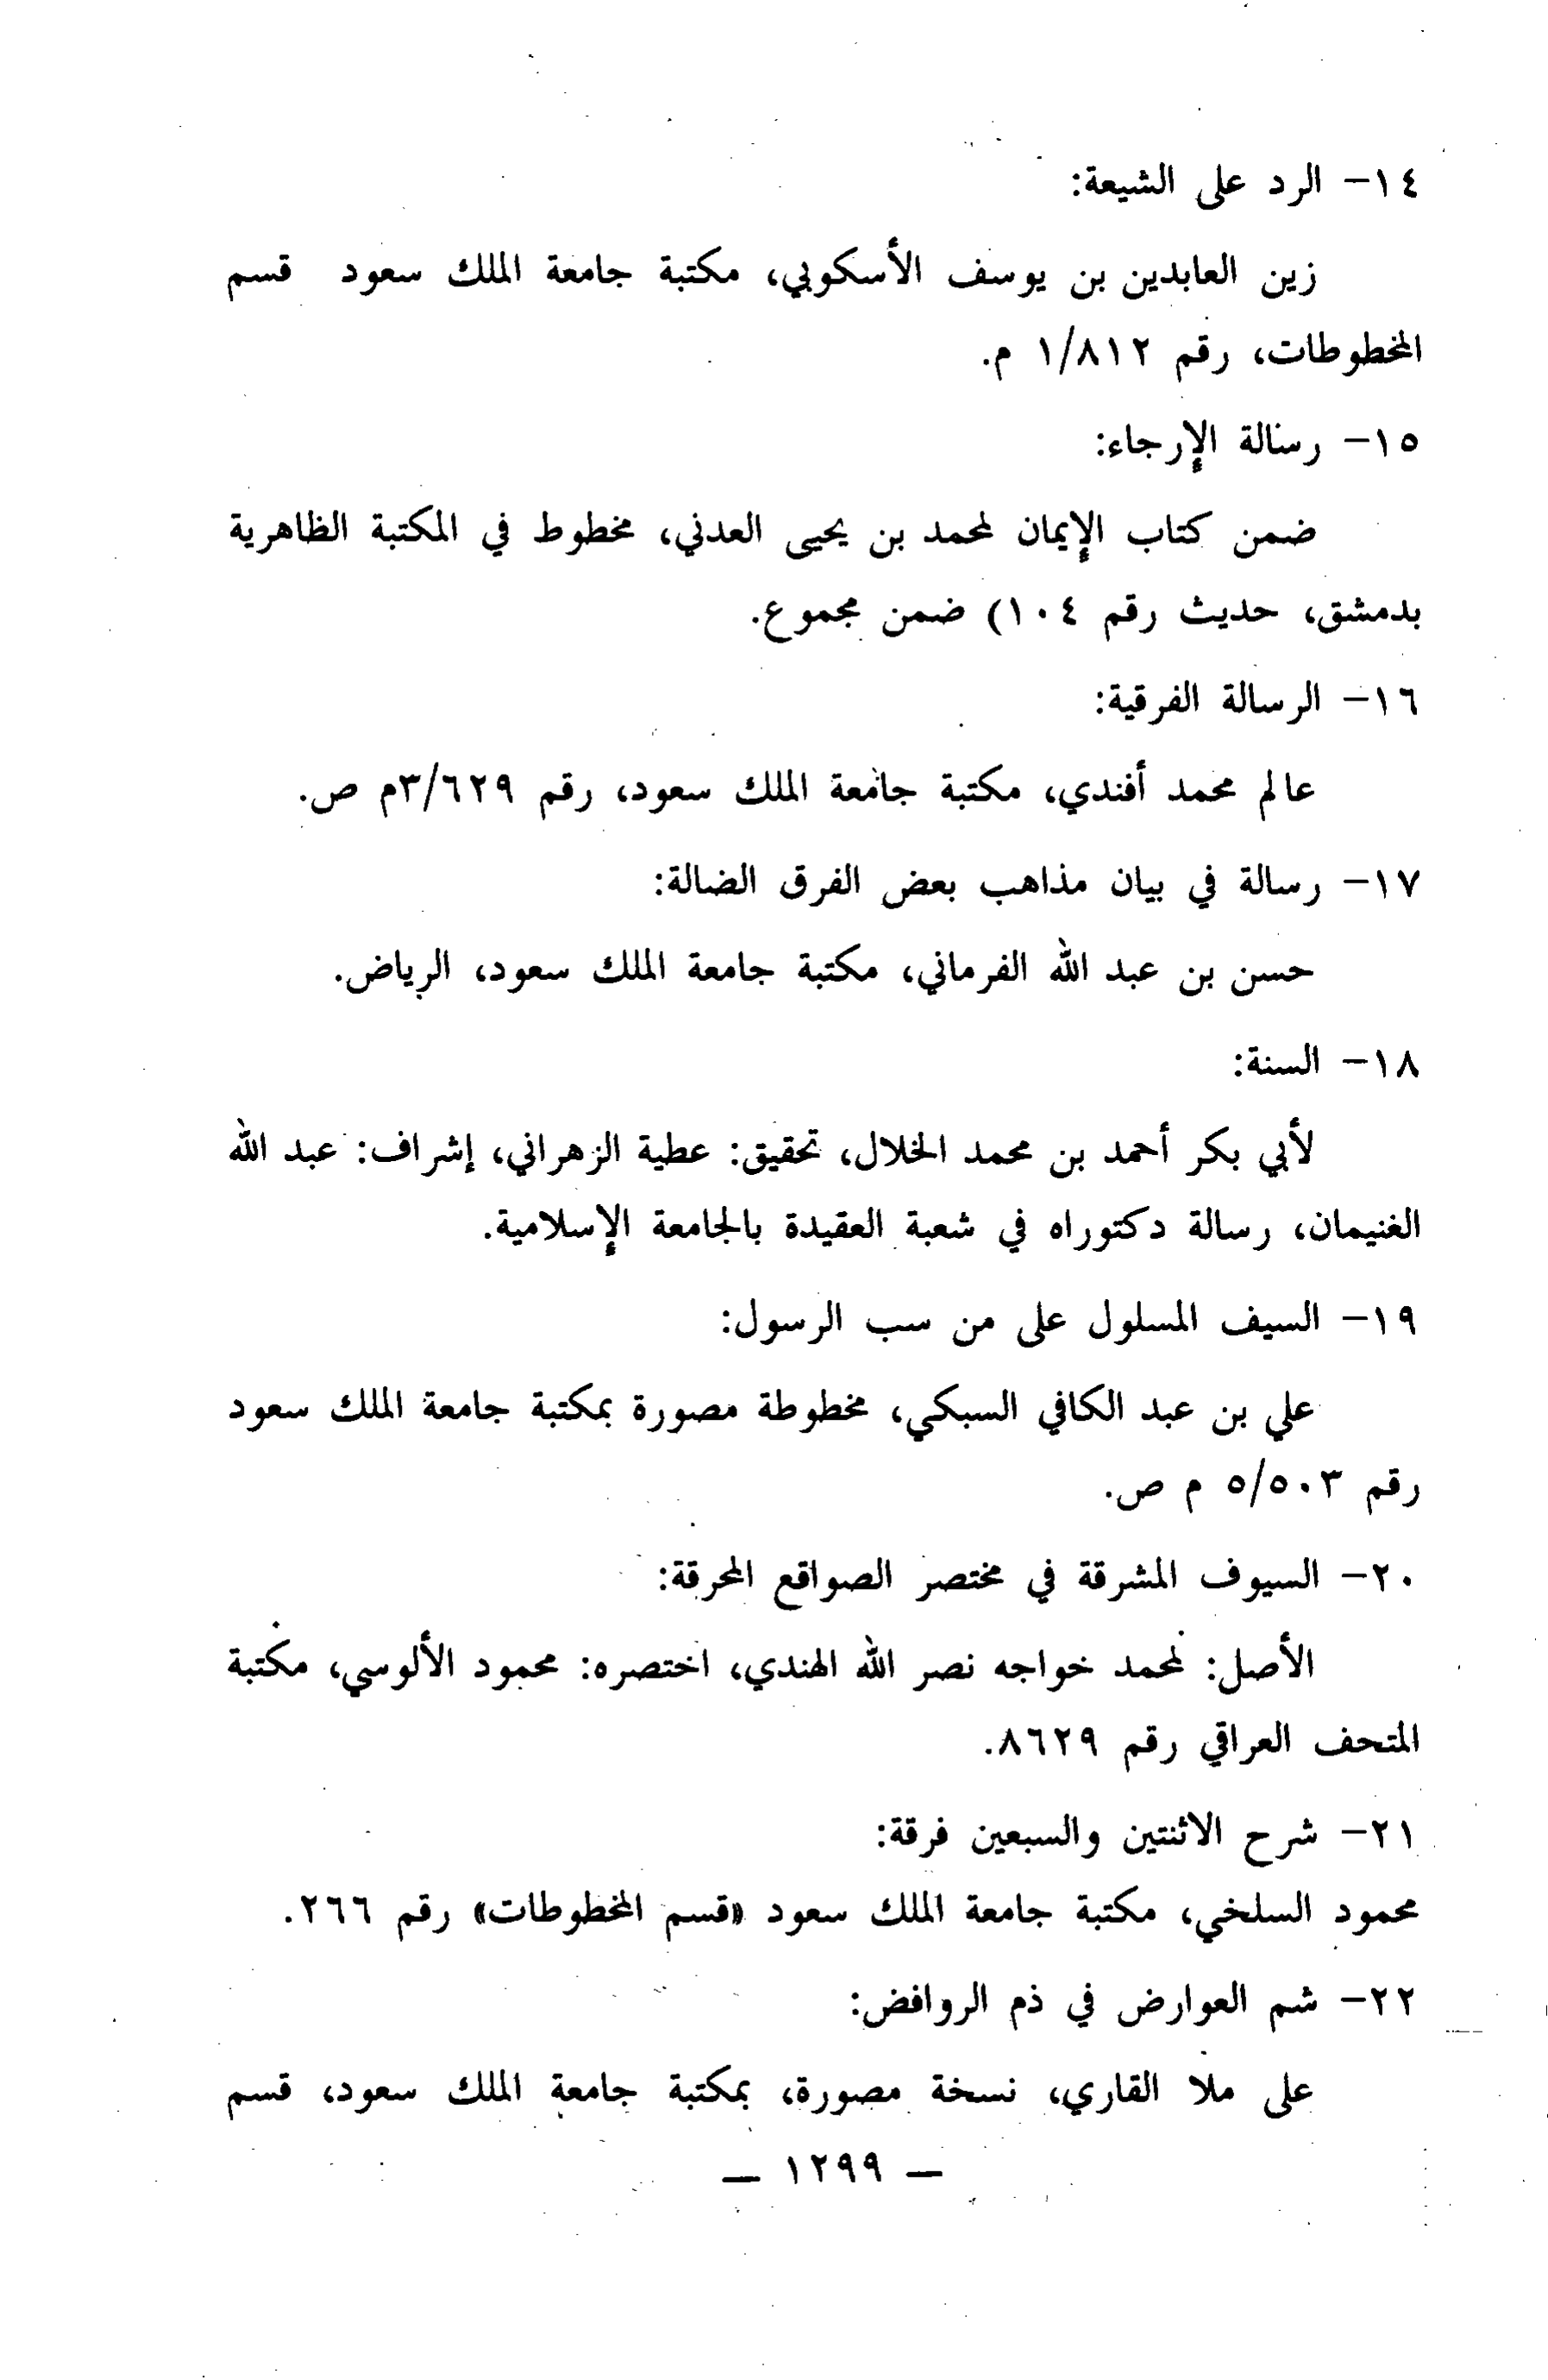 ١٤- الرد على الشيعة:
زين العابدين بن يوسف الأسكوبي، مكتبة جامعة الملك سعود قسم
المخطوطات، رقم ١/٨١٢ م.
١٥- رسالة الإرجاء:
ضمن كتاب الإيمان لمحمد بن يحيى العدني، مخطوط في المكتبة الظاهرية
بدمشق، حديث رقم ١٠٤) ضمن مجموع.
١٦- الرسالة الفرقية:
عالم محمد أفندي، مكتبة جامعة الملك سعود، رقم ٣/٦٢٩م ص.
١٧- رسالة في بيان مذاهب بعض الفرق الضالة:
حسن بن عبد الله الفرماني، مكتبة جامعة الملك سعود، الرياض.
١٨- السنة:
لأبي بكر أحمد بن محمد الخلال، تحقيق: عطية الزهراني، إشراف: عبد الله
الغنيمان، رسالة دكتوراه في شعبة العقيدة بالجامعة الإسلامية.
١٩- السيف المسلول على من سب الرسول:
علي بن عبد الكافي السبكي، مخطوطة مصورة بمكتبة جامعة الملك سعود
رقم ٥/٥٠٣ م ص.
٢٠- السيوف المشرقة في مختصر الصواقع المحرقة:
الأصل: لمحمد خواجه نصر الله الهندي، اختصره: محمود الألوسي، مكتبة
المتحف العراقي رقم ٨٦٢٩.
٢١- شرح الاثنتين والسبعين فرقة:
محمود السلخي، مكتبة جامعة الملك سعود «قسم المخطوطات» رقم ٢٦٦.
٢٢- شم العوارض في ذم الروافض:
على ملا القاري، نسخة مصورة، بمكتبة جامعة الملك سعود، قسم
— ١٢٩٩ —